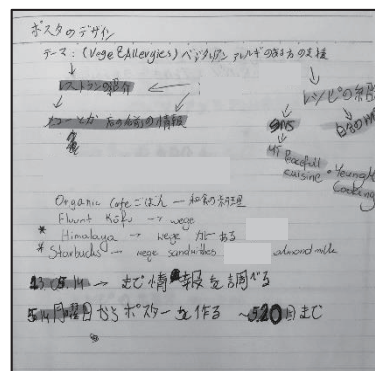 ポスタのデザイン
テーマ:(Vege & Allergies) ベジタリアン アレルギのある方の支援
レストランの紹介
レシピの紹
メニューとか 店の名前の情報
SNS
自分の
Hi Peacefull
cuisine
• Yeung M
Cooking
Organic Cafe ごはん — 和食の料理
Fluunt Kōfu → vege
* Himalaya → vege カレー ある
* Starbucks → vege sandwiches almond milk
5.14 → まで 情報を調べる
5.14 月曜日から ポスターを作る ~5.20日まで